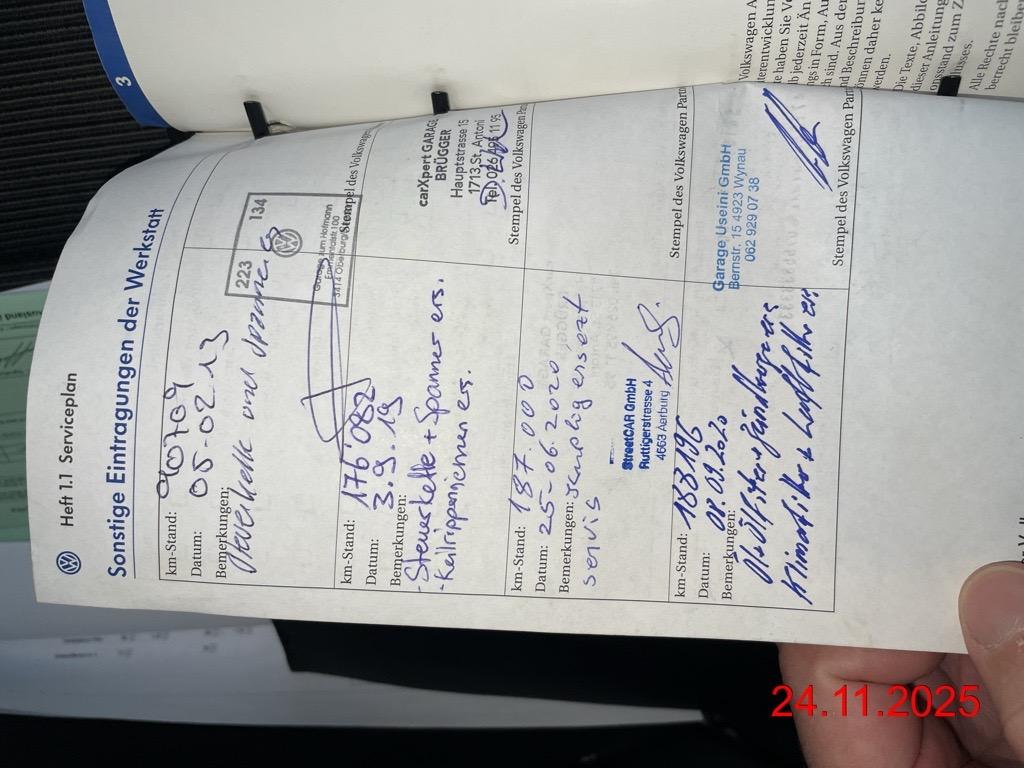 3
Heft 1.1 Serviceplan
Sonstige Eintragungen der Werkstatt
km-Stand: 90709
Datum: 05-02.13
Bemerkungen:
Steuerkette und Spanner
223 134
Garage zum Hofmann
Emmentalstr. 100
3414 Oberburg
Stempel des Volkswagen
km-Stand: 176 082
Datum: 3.9.19
Bemerkungen:
- Steuerkette + Spanner ers.
- Keilrippenriemen ers.
carXpert GARAGE
BRÜGGER
Hauptstrasse 15
1713 St. Antoni
Tel. 026 495 11 95
Stempel des Volkswagen Par
km-Stand: 187.000
Datum: 25-06.2020
Bemerkungen: ersezt
servis
StreetCAR GmbH
Ruttigerstrasse 4
4663 Aarburg
Stempel des Volkswagen Partn
km-Stand: 188196
Datum: 08.09.2020
Bemerkungen:
Öl + Ölfilter + Zündkerze ers
Klimafilter + Luftfilter ers
Garage Useini GmbH
Bernstr. 15 4923 Wynau
062 929 07 38
Stempel des Volkswagen Part
Volkswagen A
terentwicklun
e haben Sie Ve
b jederzeit Än
gs in Form, Au
h sind. Aus den
d Beschreibur
önnen daher ke
werden.
Die Texte, Abbild
dieser Anleitung
onsstand zum Z
lusses.
Alle Rechte nach
berrecht bleiben
24.11.2025